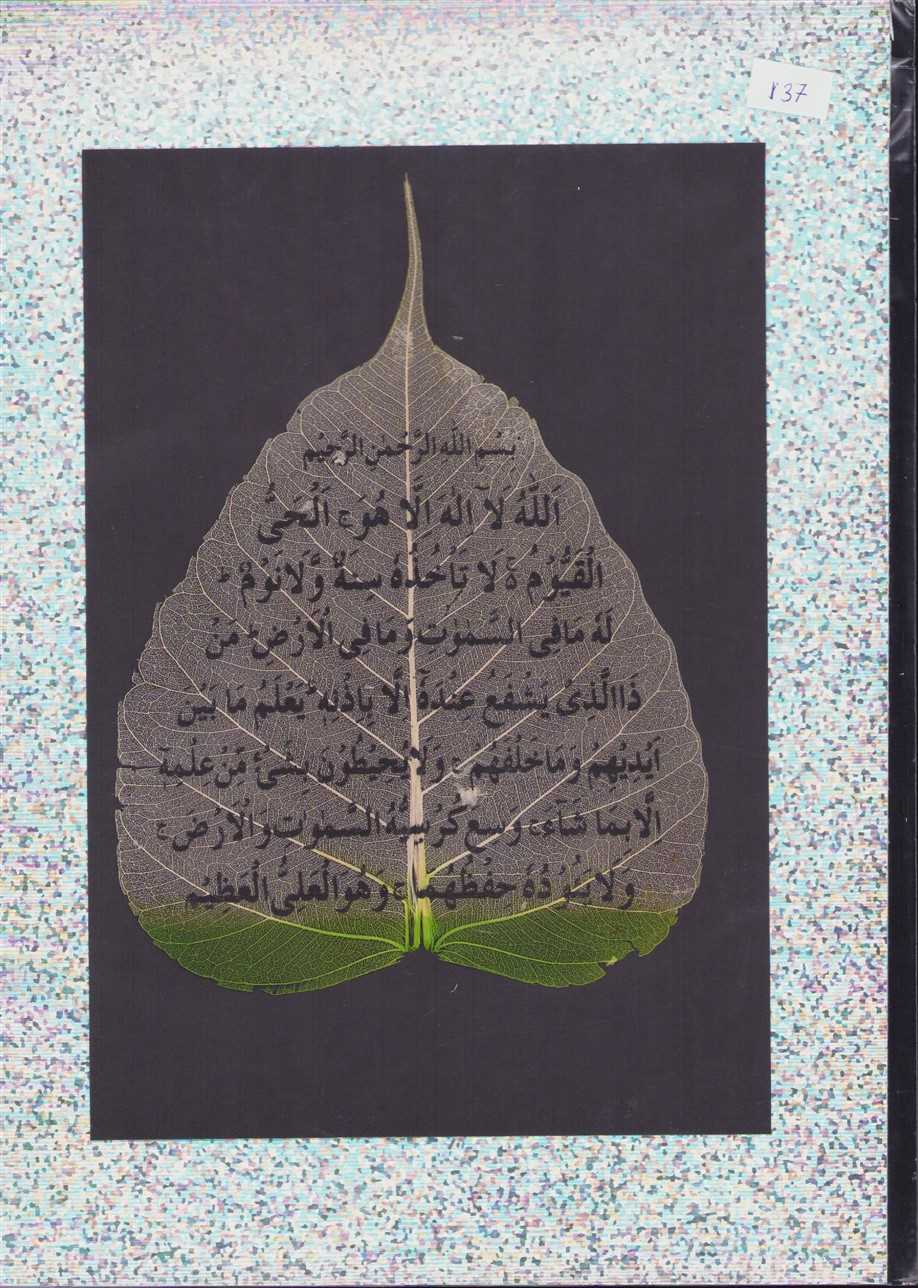 137
بِسْمِ اللّٰهِ الرَّحْمٰنِ الرَّحِيْمِ
اَللّٰهُ لَآ اِلٰهَ اِلَّا هُوَ ج اَلْحَىُّ
الْقَيُّوْمُ ۃ لَا تَاْخُذُهٗ سِنَةٌ وَّلَا نَوْمٌ ط
لَهٗ مَا فِى السَّمٰوٰتِ وَمَا فِى الْاَرْضِ ط مَنْ
ذَا الَّذِىْ يَشْفَعُ عِنْدَهٗٓ اِلَّا بِاِذْنِهٖ ط يَعْلَمُ مَا بَيْنَ
اَيْدِيْهِمْ وَمَا خَلْفَهُمْ ج وَلَا يُحِيْطُوْنَ بِشَىْءٍ مِّنْ عِلْمِهٖٓ
اِلَّا بِمَا شَآءَ ج وَسِعَ كُرْسِيُّهُ السَّمٰوٰتِ وَالْاَرْضَ ج
وَلَا يَئُوْدُهٗ حِفْظُهُمَا ج وَهُوَ الْعَلِىُّ الْعَظِيْمُ